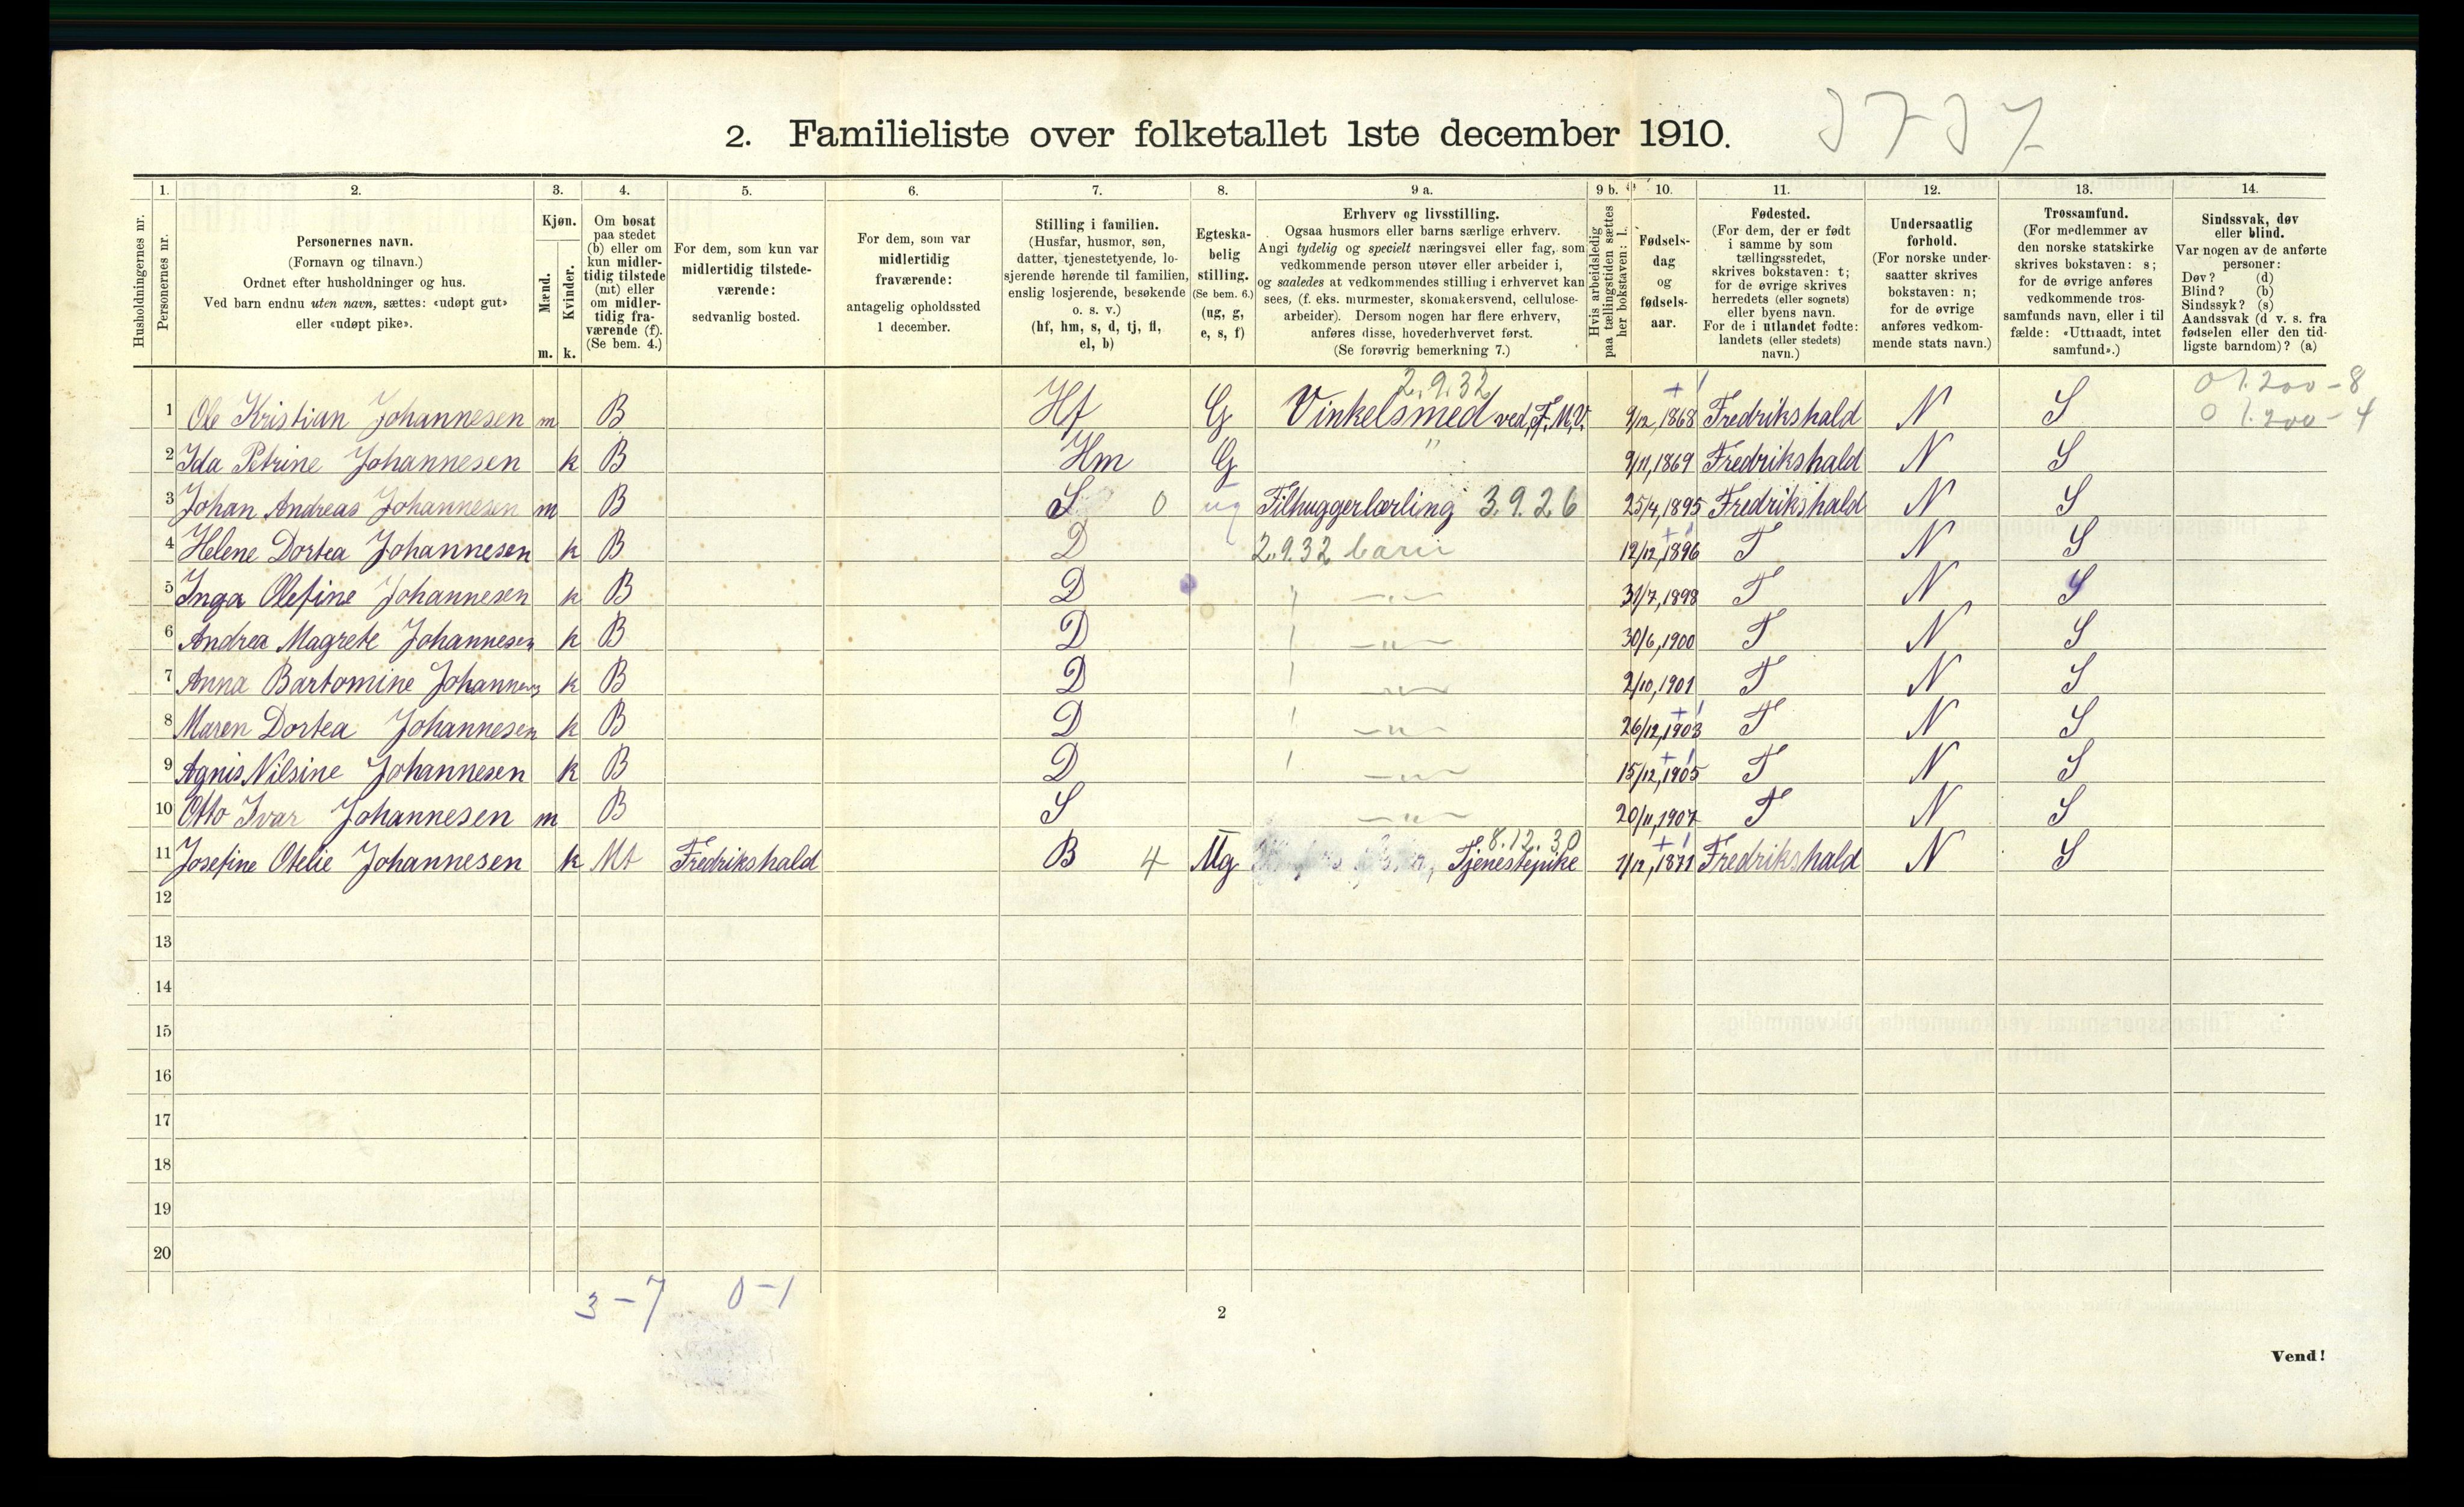 2. Familieliste over folketallet 1ste december 1910.
1. 2. 3. 4. 5. 6. 7. 8. 9 a. 9 b. 10. 11. 12. 13. 14.
Husholdningernes nr.
Personernes nr.
Personernes navn.
(Fornavn og tilnavn.)
Ordnet efter husholdninger og hus.
Ved barn endnu uten navn, sættes: «udøpt gut»
eller «udøpt pike».
Kjøn.
Mænd.
Kvinder.
m. k.
Om bosat
paa stedet
(b) eller om
kun midler-
tidig tilstede
(mt) eller
om midler-
tidig fra-
værende (f).
(Se bem. 4.)
For dem, som kun var
midlertidig tilstede-
værende:
sedvanlig bosted.
For dem, som var
midlertidig
fraværende:
antagelig opholdssted
1 december.
Stilling i familien.
(Husfar, husmor, søn,
datter, tjenestetyende, lo-
sjerende hørende til familien,
enslig losjerende, besøkende
o. s. v.)
(hf, hm, s, d, tj, fl,
el, b)
Egteska-
belig
stilling.
(Se bem. 6.)
(ug, g,
e, s, f)
Erhverv og livsstilling.
Ogsaa husmors eller barns særlige erhverv.
Angi tydelig og specielt næringsvei eller fag, som
vedkommende person utøver eller arbeider i,
og saaledes at vedkommendes stilling i erhvervet kan
sees, (f. eks. murmester, skomakersvend, cellulose-
arbeider). Dersom nogen har flere erhverv,
anføres disse, hovederhvervet først.
(Se forøvrig bemerkning 7.)
Hvis arbeidsledig
paa tællingstiden sættes
her bokstaven: l.
Fødsels-
dag
og
fødsels-
aar.
Fødested.
(For dem, der er født
i samme by som
tællingsstedet,
skrives bokstaven: t;
for de øvrige skrives
herredets (eller sognets)
eller byens navn.
For de i utlandet fødte:
landets (eller stedets)
navn.)
Undersaatlig
forhold.
(For norske under-
saatter skrives
bokstaven: n;
for de øvrige
anføres vedkom-
mende stats navn.)
Trossamfund.
(For medlemmer av
den norske statskirke
skrives bokstaven: s;
for de øvrige anføres
vedkommende tros-
samfunds navn, eller i til
fælde: «Uttraadt, intet
samfund».)
Sindssvak, døv
eller blind.
Var nogen av de anførte
personer:
Døv? (d)
Blind? (b)
Sindssyk? (s)
Aandssvak (d v. s. fra
fødselen eller den tid-
ligste barndom)? (a)
2.9.32
1 Ole Kristian Johannesen m B Hf G Vinkelsmed ved F.M.V. 9/12,1868 Fredrikshald N S
2 Ida Petrine Johannesen k B Hm G " 9/11,1869 Fredrikshald N S
3 Johan Andreas Johannesen m B S 0 ug Filhuggerlærling 3.9.26 25/4,1895 Fredrikshald N S
4 Helene Dortea Johannesen k B D 2.9.32 barn 12/12,1896 T N S
5 Inga Olefine Johannesen k B D — " — 31/7,1898 T N S
6 Andrea Magrete Johannesen k B D — " — 30/6,1900 T N S
7 Anna Bartomine Johannes k B D — " — 2/10,1901 T N S
8 Maren Dortea Johannesen k B D — " — 26/12,1903 T N S
9 Agnis Nilsine Johannesen k B D — " — 15/12,1905 T N S
10 Otto Ivar Johannesen m B S — " — 20/11,1907 T N S
8.12.30
11 Josefine Otelie Johannesen k Mt Fredrikshald B 4 Ug Tjenestepike 1/12,1871 Fredrikshald N S
12
13
14
15
16
17
18
19
20
3 - 7 0 - 1
2
Vend!